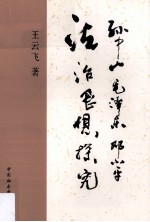 孙中山 毛泽东 邓小平
法治思想探究
王云飞 著